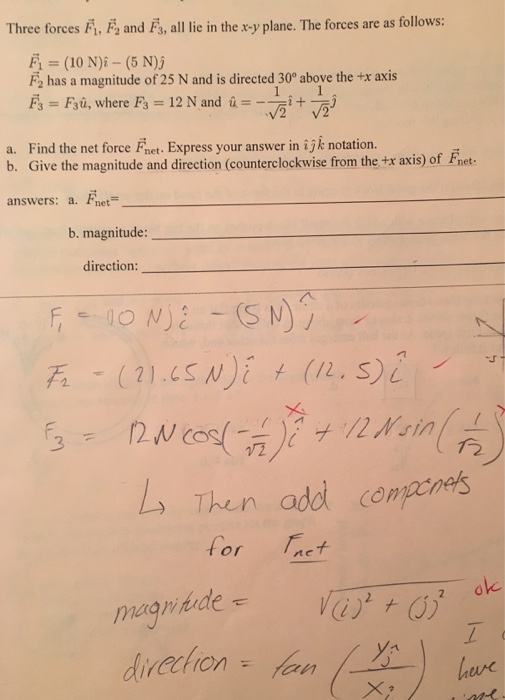 Three forces F⃗₁, F⃗₂ and F⃗₃, all lie in the x-y plane. The forces are as follows:
F⃗₁ = (10 N)î − (5 N)ĵ
F⃗₂ has a magnitude of 25 N and is directed 30° above the +x axis
F⃗₃ = F₃û, where F₃ = 12 N and û = −1/√2 î + 1/√2 ĵ
a. Find the net force F⃗net. Express your answer in î ĵ k̂ notation.
b. Give the magnitude and direction (counterclockwise from the +x axis) of F⃗net.
answers: a. F⃗net=
b. magnitude:
direction:
F₁ = 10 N)î − (5 N)ĵ
F₂ = (21.65 N)î + (12.5)î
F₃ = 12 N cos(−1/√2)î + 12 N sin(1/√2)
↳ Then add compcnets
for Fnet
magnitude = √(i)² + (j)² ok
I
direction = tan (yĵ/xî) have